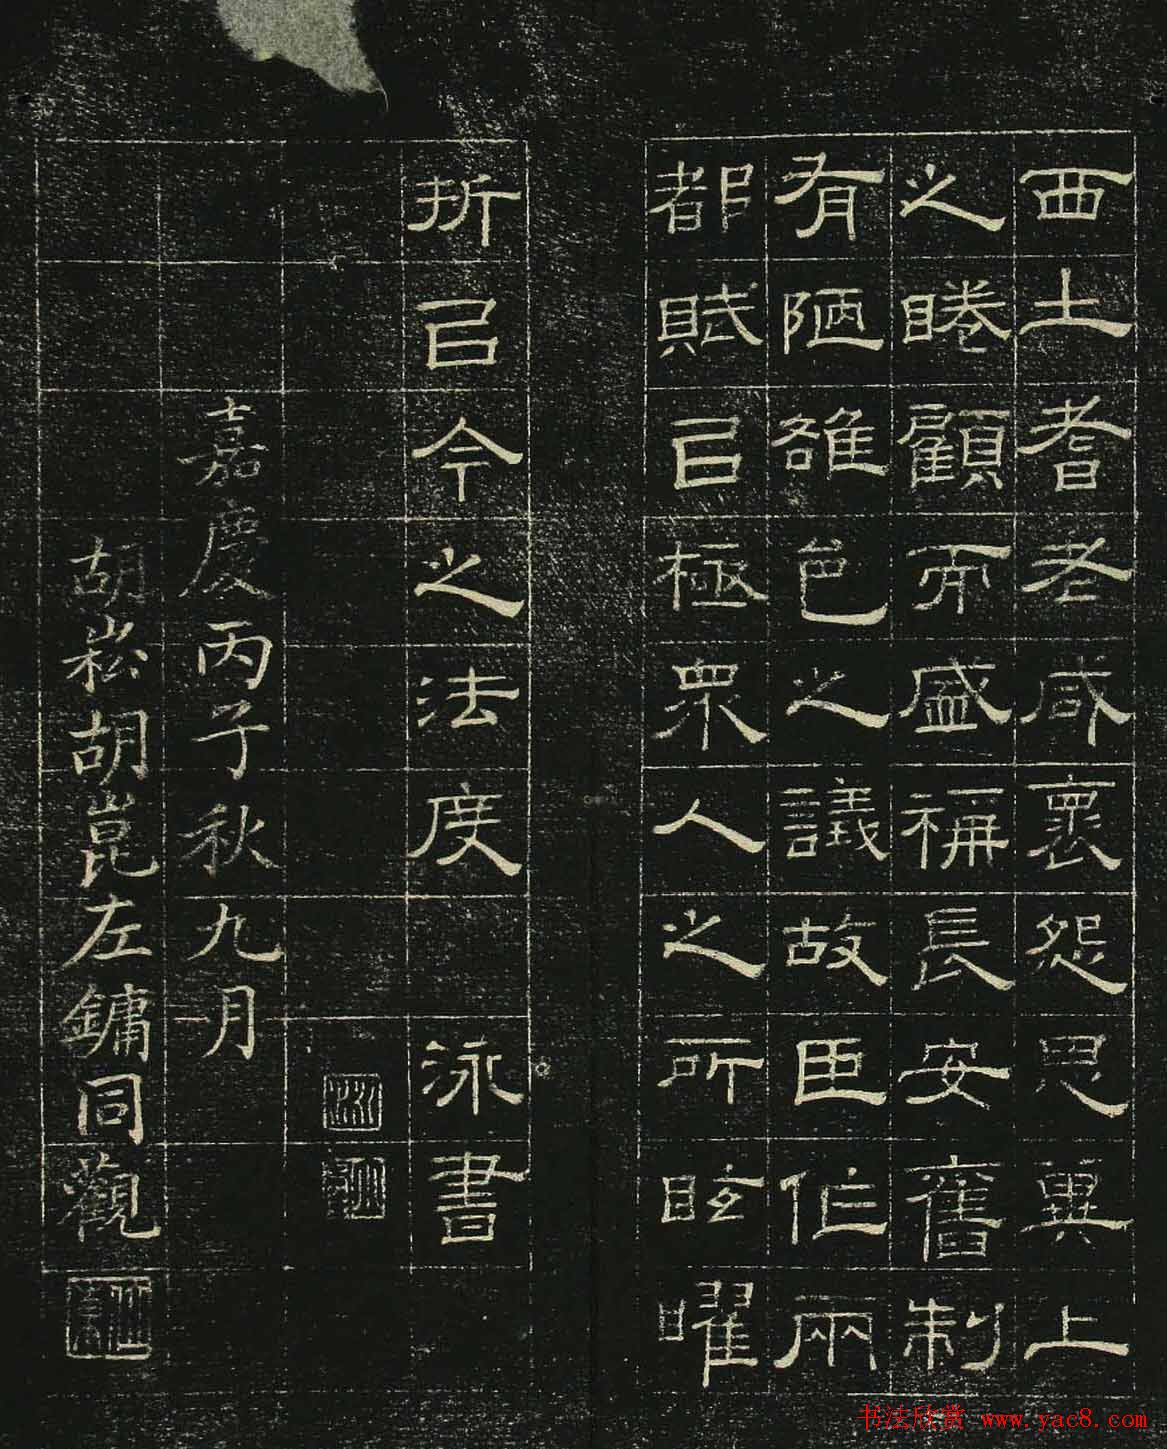 西土耆老咸裹怨思冀上
之睠顧而盛稱長安舊制
有陋雒邑之議故臣作兩
都賦㠯極衆人之所眩曜
折㠯今之法度 泳書
嘉慶丙子秋九月
胡崧胡崑左鏞同觀
书法欣赏 www.yac8.com